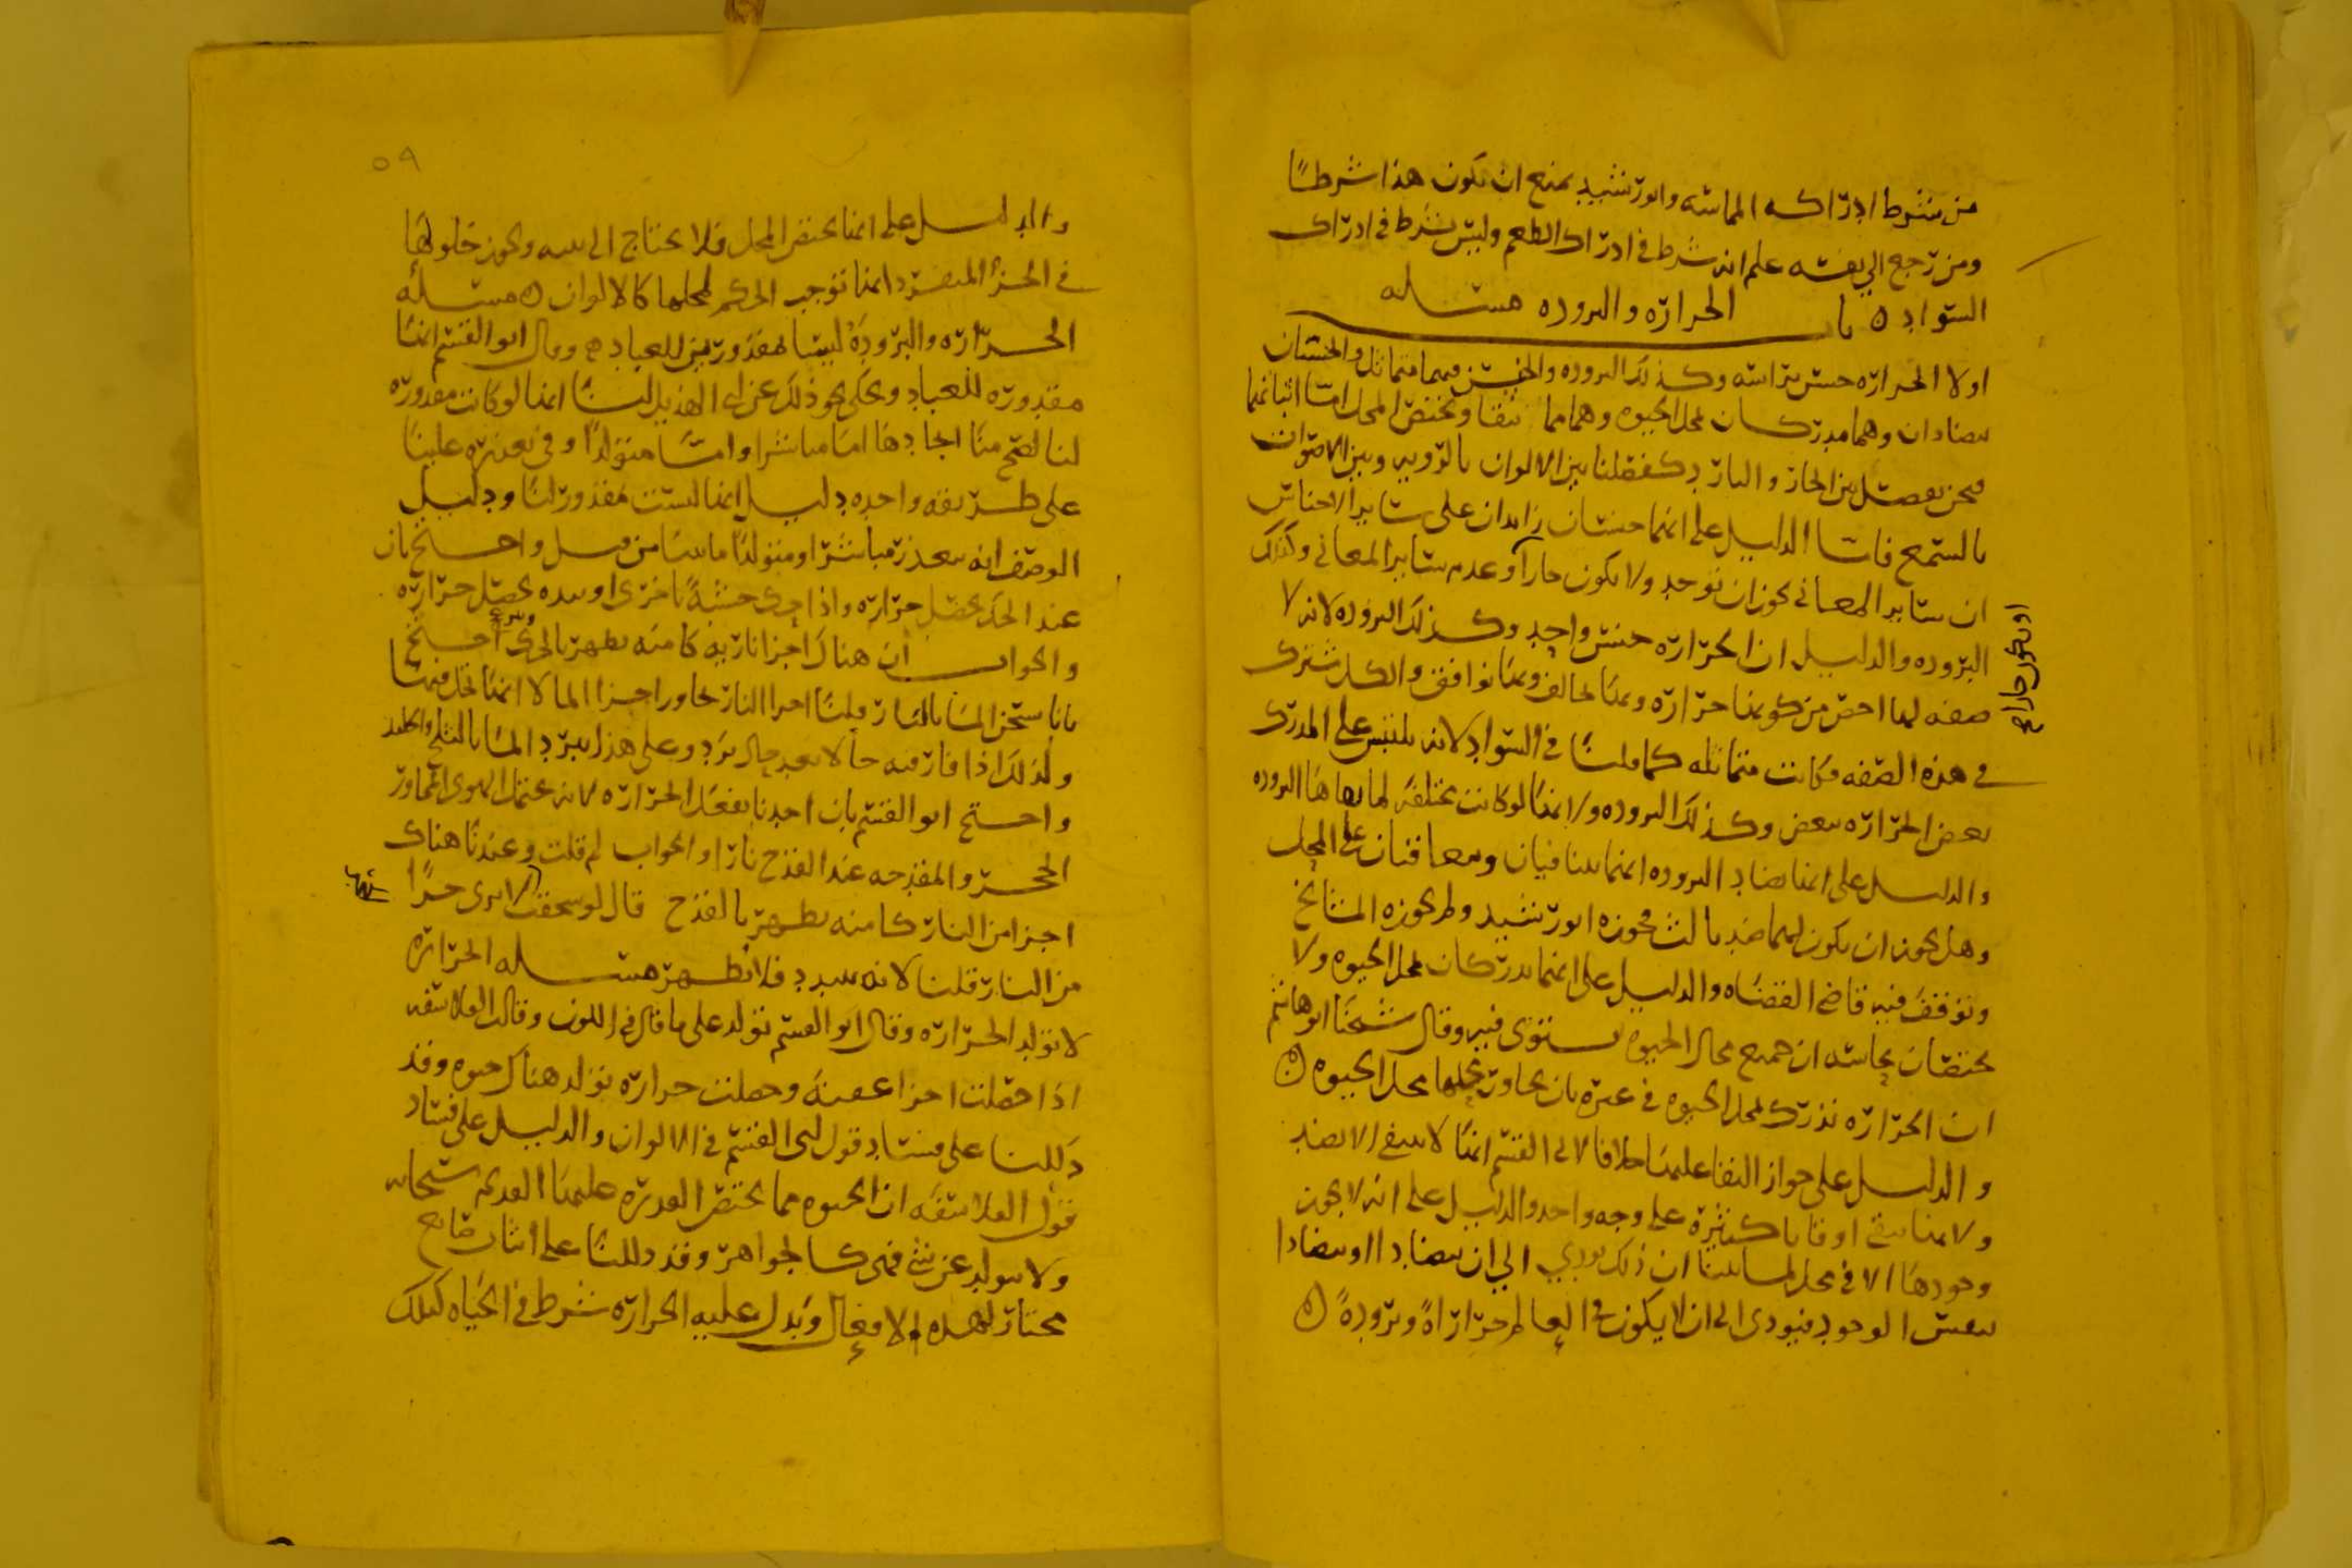 من شرط ادراكه المماسه وابو رشيد يمنع ان يكون هذا شرطا
ومن رجع الي نفسه علم انه شرط في ادراك الطعم وليس بشرط في ادراك
السواد ه باب الحراره والبروده مسله
اولا الحراره جنس براسه وكذلك البروده والجنس منهما متماثل والجنسان
يتضادان وهما مدركان بمحل الحيوه وهما مما يبقا وتختص المحل اما اثباتهما
فنحن نفصل بين الحار والبارد كفصلنا بين الالوان بالرويه وبين الاصوات
بالسمع فاما الدليل على انهما جنسان زايدان على ساير الاجناس
ان ساير المعاني يجوز ان توجد ولا يكون حارا وعدم ساير المعاني وكذلك
او يكون حارا صح
البروده والدليل ان الحراره جنس واحد وكذلك البروده لانه لا
صفه لها اخص من كونها حراره وبها تخالف وبها توافق والكل مشترك
في هذه الصفه فكانت متماثله كما قلنا في السواد لانه يلتبس على المدرك
بعض الحراره ببعض وكذلك البروده ولانها لو كانت مختلفه لما نفاها البروده
والدليل على انها تضاد البروده انهما يتنافيان ويتعاقبان على المحل
وهل يجوز ان يكون لهما ضد ثالث فجوزه ابو رشيد ولم يجوزه المشائخ
وتوقف فيه قاضي القضاه والدليل على انهما يدركان بمحل الحيوه ولا
يختصان بحاسه ان جميع محال الحيوه تستوى فيه وقال شيخنا ابو هاشم
ان الحراره تدرك بمحل الحيوه في غيره بان يجاور محلها محل الحيوه ه
والدليل على جواز البقا عليها خلافا لابي القسم انها لا تنتفي الا بضد
ولانها تبقى اوقاتا كثيرة على وجه واحد والدليل على انه لا يجوز
وجودها الا في محل لما بينا ان ذلك يودي الي ان يتضادا او يتضادا
بنفس الوجود فيودى الى ان لا يكون في العالم حرارة وبرودة ه
٥٩
والدليل على انها تختص المحل فلا يحتاج الى بنيه ويجوز حلولها
في الجزء المنفرد انها توجب الحكم لمحلها كالالوان ه مسله
الحراره والبروده ليستا بمقدورتين للعباد وقال ابو القسم انها
مقدوره للعباد ويحكى نحو ذلك عن ابي الهذيل لنا انها لو كانت مقدوره
لنا لصح منا ايجادها اما مباشرا واما متولدا وفي تعذره علينا
على طريقه واحده دليل انها ليست مقدور لنا ودليل
الوصف انه يتعذر مباشرا ومتولدا ما بينا من قبل واحتج بان
عند الحك يحصل حراره واذا حك خشبة باخرى او بيده يحصل حراره
والجواب ان هناك اجزا ناريه كامنه تظهر بالحك واحتج
بانا نسخن الما بالنار قلنا اجزا النار تجاور اجزا الما لا انها تحل فيها
ولذلك اذا فارقته حالا بعد حال برد وعلى هذا يبرد الما بالثلج والجليد
واحتج ابو القسم بان احدنا يفعل الحراره لانه الهوى المجاور
الحجر والمقدحه عند القدح نارا والجواب لم قلت وعندنا هناك
اجزا من النار كامنه تظهر بالقدح قال لو سحقت لا يرى جزا
من النار قلنا لانه يتبدد فلا تظهر مسله الحراره
لا تولد الحراره وقال ابو القسم تولد على ما قال في اللون وقالت الفلاسفه
اذا حصلت اجزا عفنه وحصلت حراره تولد هناك حيوه وقد
دللنا على فساد قول ابي القسم في الالوان والدليل على فساد
قول الفلاسفه ان الحيوه مما يختص القدره عليها القديم سبحانه
ولا يتولد عن شي فهي كالجواهر وقد دللنا على اثبات صانع
مختار لهذه الافعال وتدل عليه الحراره شرط في الحياه كذلك